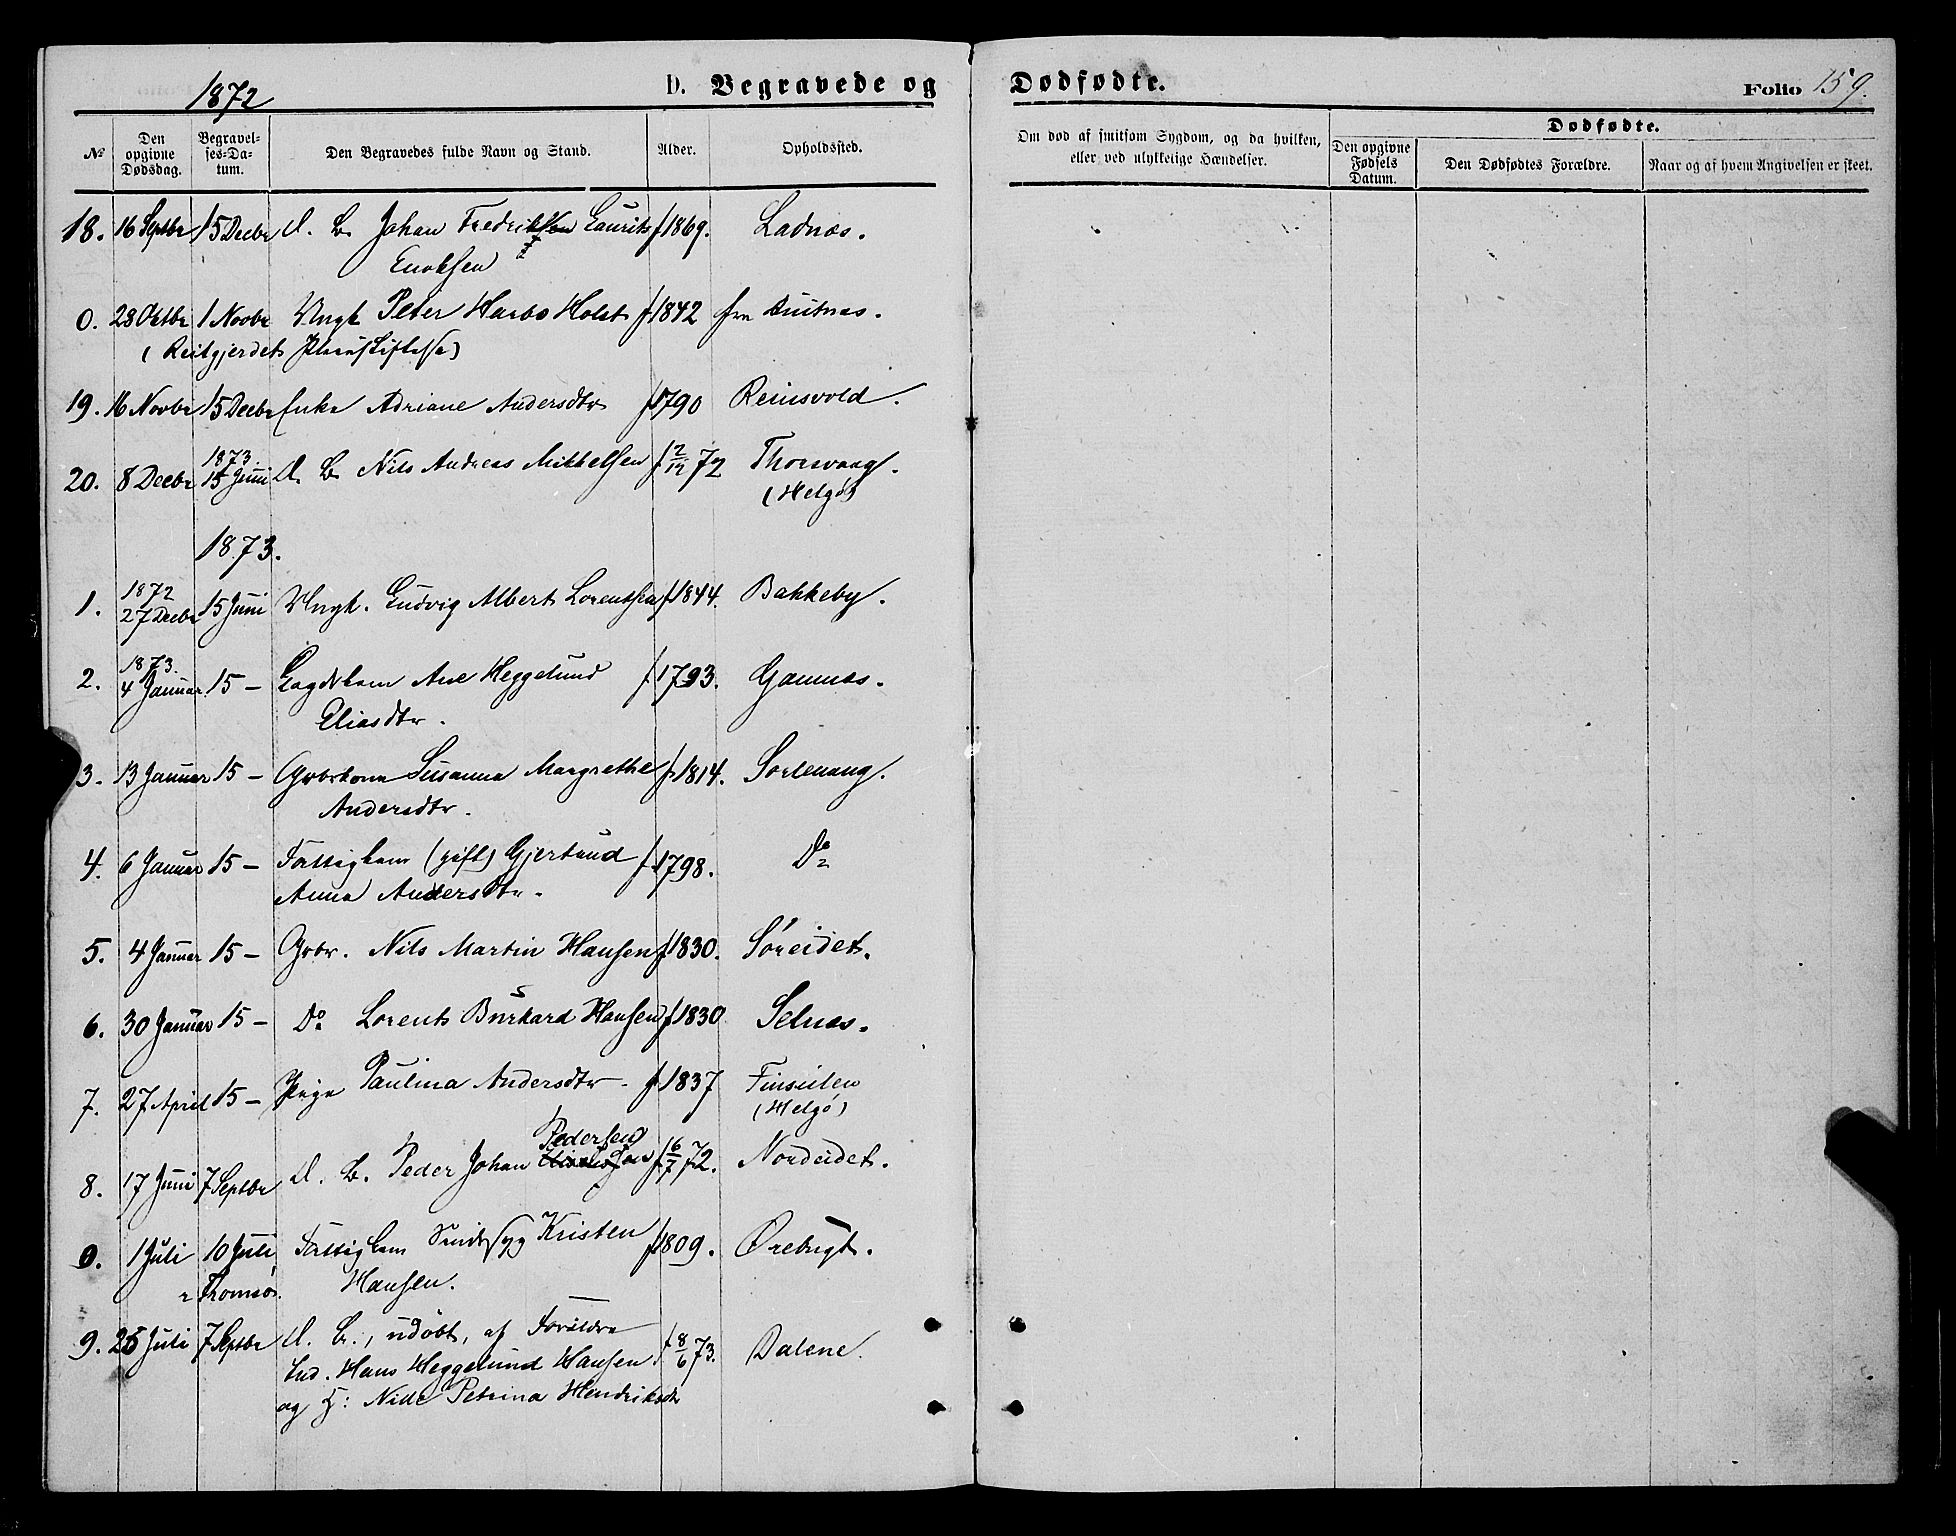 1872
D. Begravede og Dødfødte.
Folio 159.
№ Den opgivne Dødsdag. Begravelses-Datum. Den Begravedes fulde Navn og Stand. Alder. Opholdssted. Om død af smitsom Sygdom, og da hvilken, eller ved ulykkelige Hændelser. Dødfødte. Den opgivne Fødsels Datum. Den Dødfødtes Forældre. Naar og af hvem Angivelsen er skeet.
18. 16 Septbr 15 Decbr d. B. Johan Fredrik Laurits f 1869. Ladnæs.
Enoksen
0. 28 Oktbr 1 Novbr Ungk Peter Harbo Holst f 1842 fra
(Reitgjerdets Pleiestiftelse)
19. 16 Novbr 15 Decbr Enke Adriane Andersdtr f 1790 Reinsvold.
1873
20. 8 Decbr 15 Juni d. B. Nils Andreas Mikkelsen f 2/12 72 Thorsvaag.
(Helgø)
1873.
1872
1. 27 Decbr 15 Juni Ungk. Ludvig Albert Lorentsen f 1844. Bakkeby.
1873.
2. 4 Januar 15 – Ane Heggelund f 1793. Gamnæs.
Eliasdtr.
3. 13 Januar 15 – Gbrkone Susanna Margrethe f 1814. Sorlenang.
Andersdtr.
4. 6 Januar 15 – Fattiglem (gift) Gjertrud f 1798. Do
Anna Andersdtr.
5. 4 Januar 15 – Gbr. Nils Martin Hansen f 1830. Søreidet.
6. 30 Januar 15 – Do Lorents Burkard Hansen f 1830 Selnæs.
7. 27 April 15 – Pige Paulina Andersdtr. f 1837 Finseilen
(Helgø)
Pedersen
8. 17 Juni 7 Septbr d. B. Peder Johan f 6/7 72. Nordeidet.
0. 1 Juli 10 Juli Fattiglem Sindssyg Kristen f 1809. Ørebugt.
Tromsø. Hansen.
9. 25 Juli 7 Septbr d. B., udøbt, af Forældre f 8/6 73. Dalene.
Ind. Hans Heggelund Hansen
og H: Nide Petrina Hendriksdtr